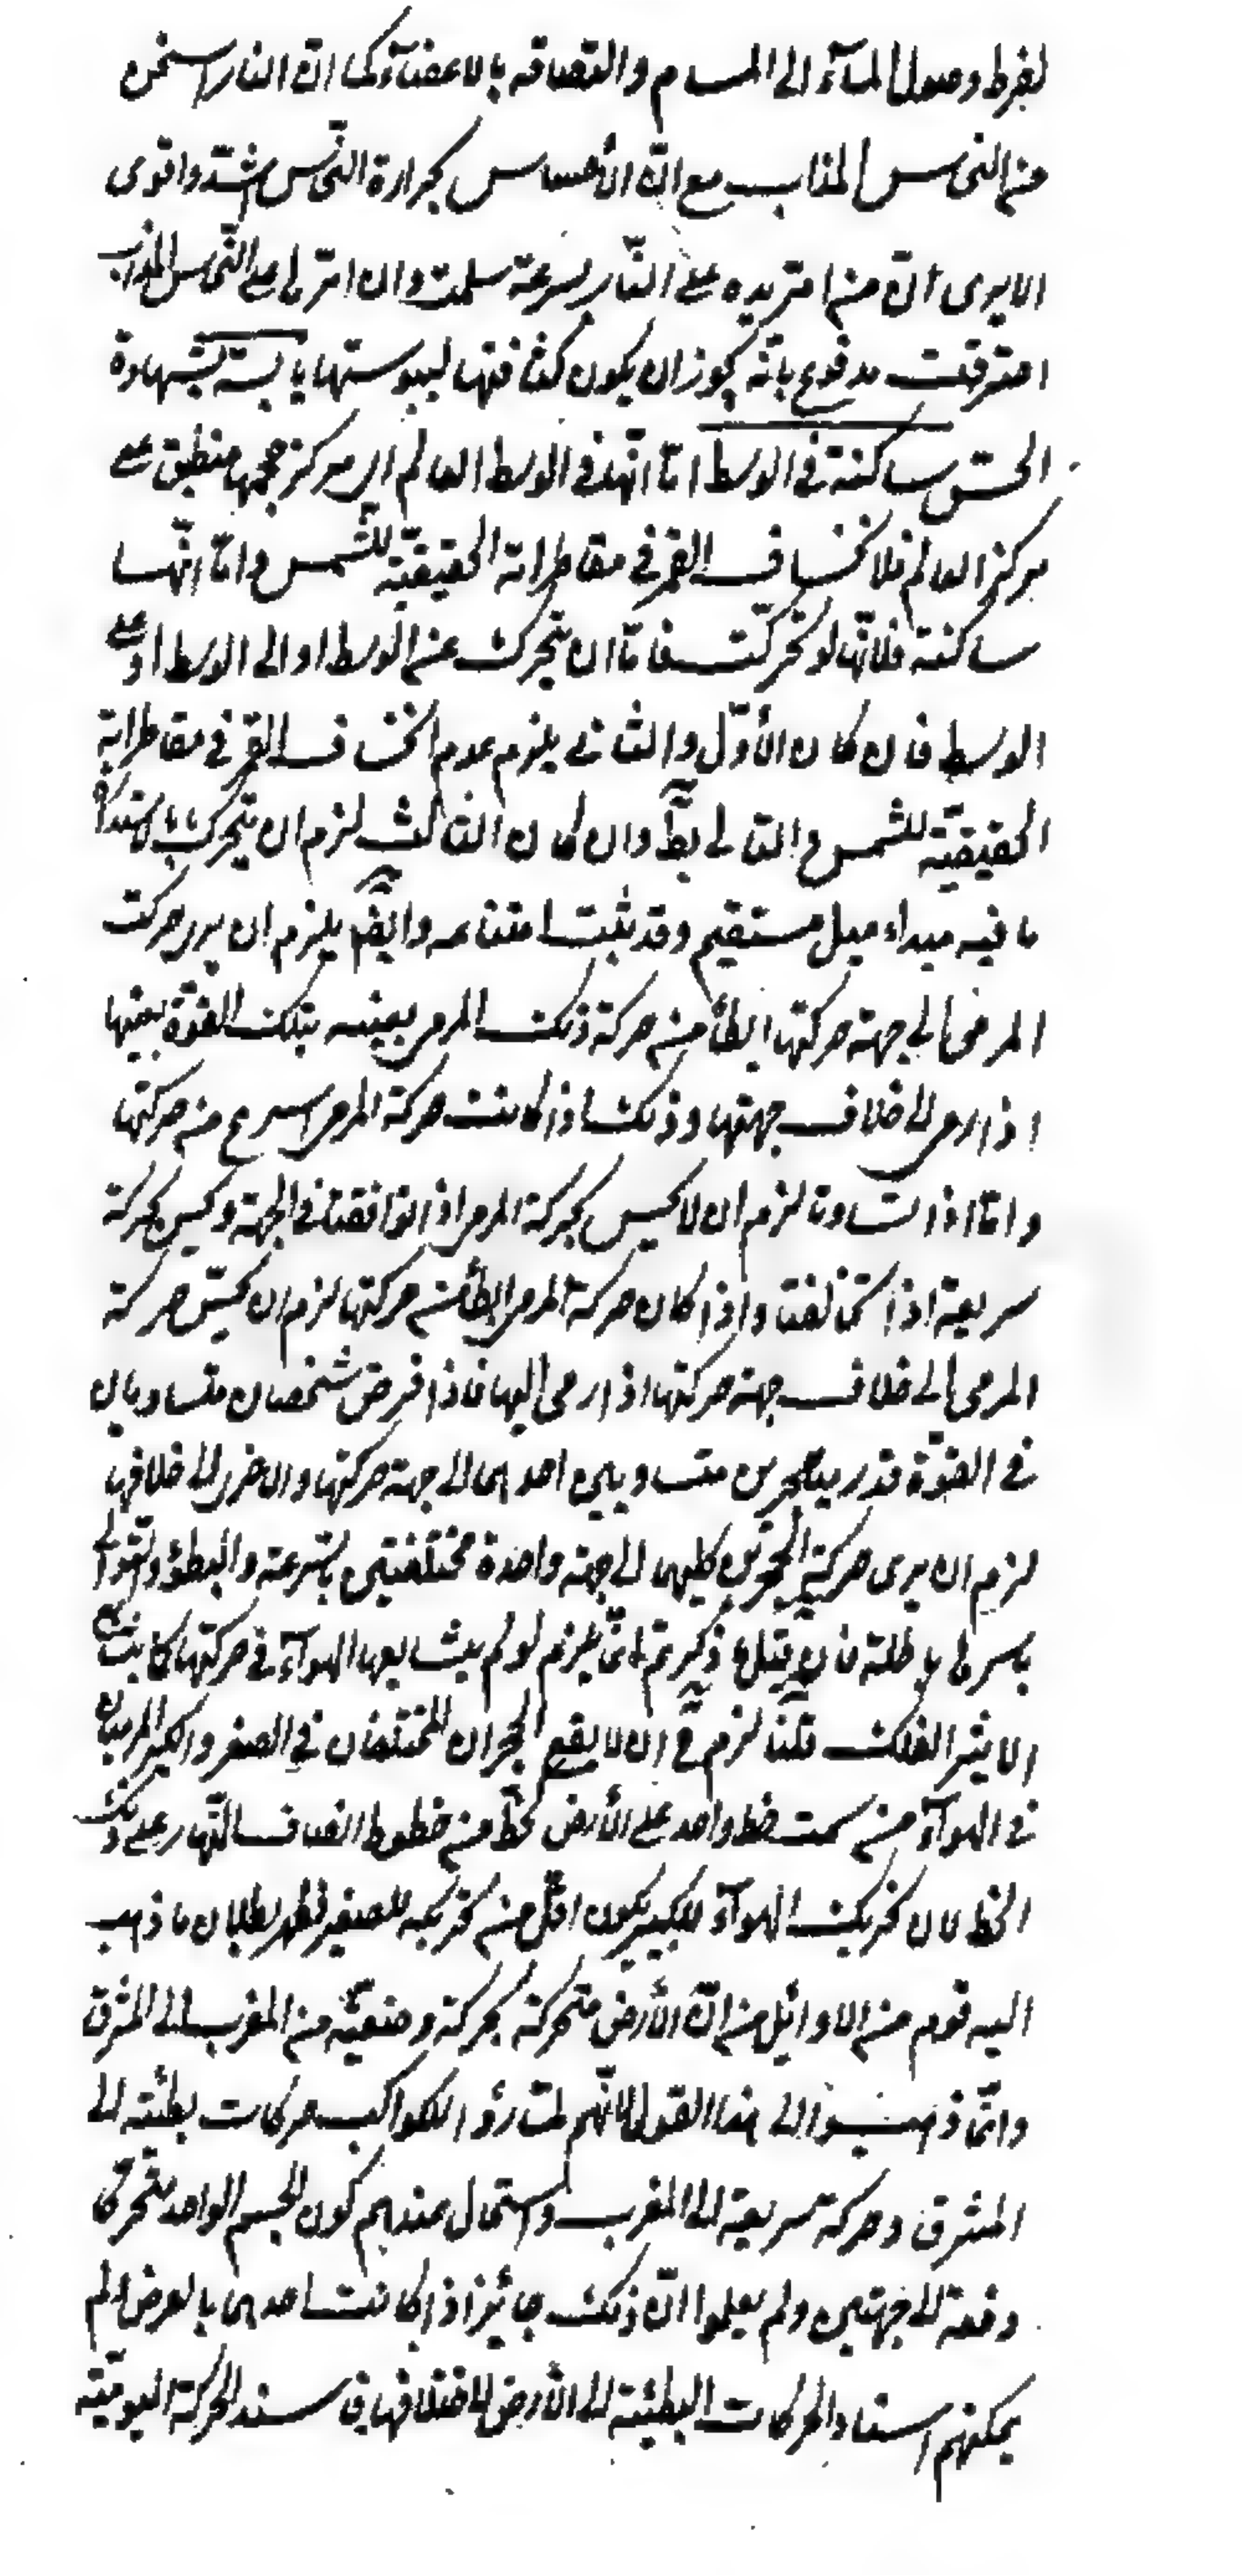 لفرط وصول المآء الى المسام والتصاقه بالاعضآء كما ان النار اسخن
من النحاس المذاب مع ان الأحساس بحرارة النحاس اشد واقوى
الا يرى ان من امر يده على النار بسرعة سلمت وان امرها على النحاس المذاب
احترقت مدفوع بانه يجوز ان يكون كثافتها ليبوستها يابسة بشهادة
الحس ساكنة فى الوسط اما انها فى الوسط العالم اى مركز حجمها منطبق على
مركز العالم فلانخساف القمر فى مقاطراته الحقيقية للشمس واما انها
ساكنة فلانها لو تحركت فاما ان يتحرك عن الوسط او الى الوسط او على
الوسط فان كان الأول والثانى يلزم عدم انخساف القمر فى مقاطراته
الحقيقية للشمس والتالى بط وان كان الثالث لزم ان يتحرك بالاستدارة
ما فيه مبداء ميل مستقيم وقد ثبت امتناعه وايضا يلزم ان يرى حركت
المرمى الى جهة حركتها ابطأ من حركة ذلك المرمى بعينه بتلك القوة بعينها
اذا رمى الى خلاف جهتها وذلك اذا كانت حركة المرمى اسرع من حركتها
واما اذا تساوتا لزم ان لا يحس بحركة المرمى اذا توافقتا فى الجهة ويحس بحركة
سريعة اذا تخالفتا واذا كان حركة المرمى ابطأ من حركتها لزم ان يحس حركة
المرمى الى خلاف جهة حركتها اذا رمى اليها فاذا فرض شخصان متساويان
فى القوة قد رميا حجرين متساويين احدهما الى جهة حركتها والاخر الى خلافها
لزم ان يرى حركة الحجرين كليهما الى جهة واحدة مختلفتين بالسرعة والبطؤ والتوالى
باسرها باطلة فان قيل ما ذكرتم انما يلزم لو لم يشايعها الهوآء فى حركتها كما يشايع
الاثير الفلك قلنا لزم ح ان لا يقع الحجران المختلفان فى الصغر والكبر المرميان
فى الهوآء من سمت خط واحد على الأرض كخط من خطوط انصاف النهار على ذلك
الخط لان تحريك الهوآء للكبير يكون اقل من تحريكه للصغير فظهر بطلان ما ذهب
اليه قوم من الاوائل من ان الأرض متحركة بحركة وضعية من المغرب الى المشرق
وانما ذهبوا الى هذا القول لانهم لما رؤا للكواكب حركات بطئية الى
المشرق وحركة سريعة الى المغرب واستحال عندهم كون الجسم الواحد متحركا
دفعة الى جهتين ولم يعلموا ان ذلك جائز اذا كانت احدهما بالعرض لم
يمكنهم استناد الحركات البطئية الى الأرض لاختلافها فى سند الحركة اليومية